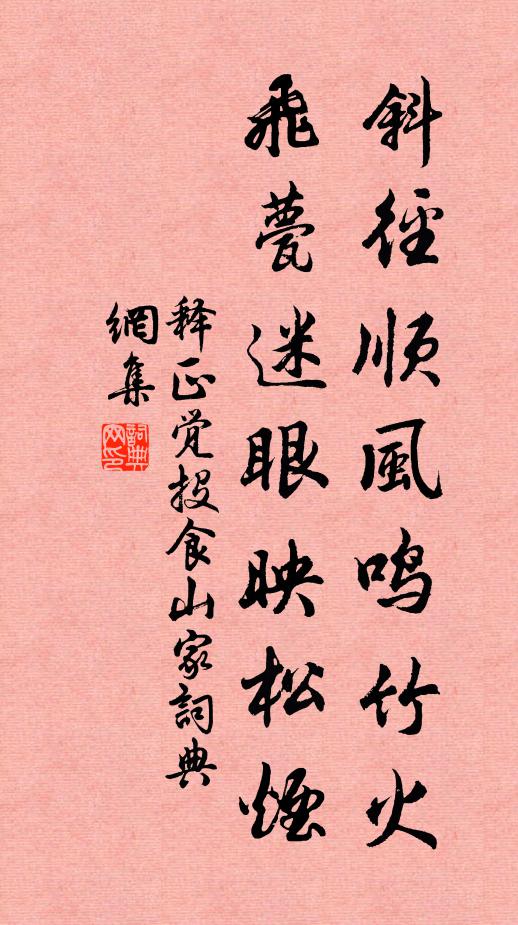 斜径順風鳴竹火
飛甍迷眼映松煙
释正觉投食山家詞典
網集
詞典網印